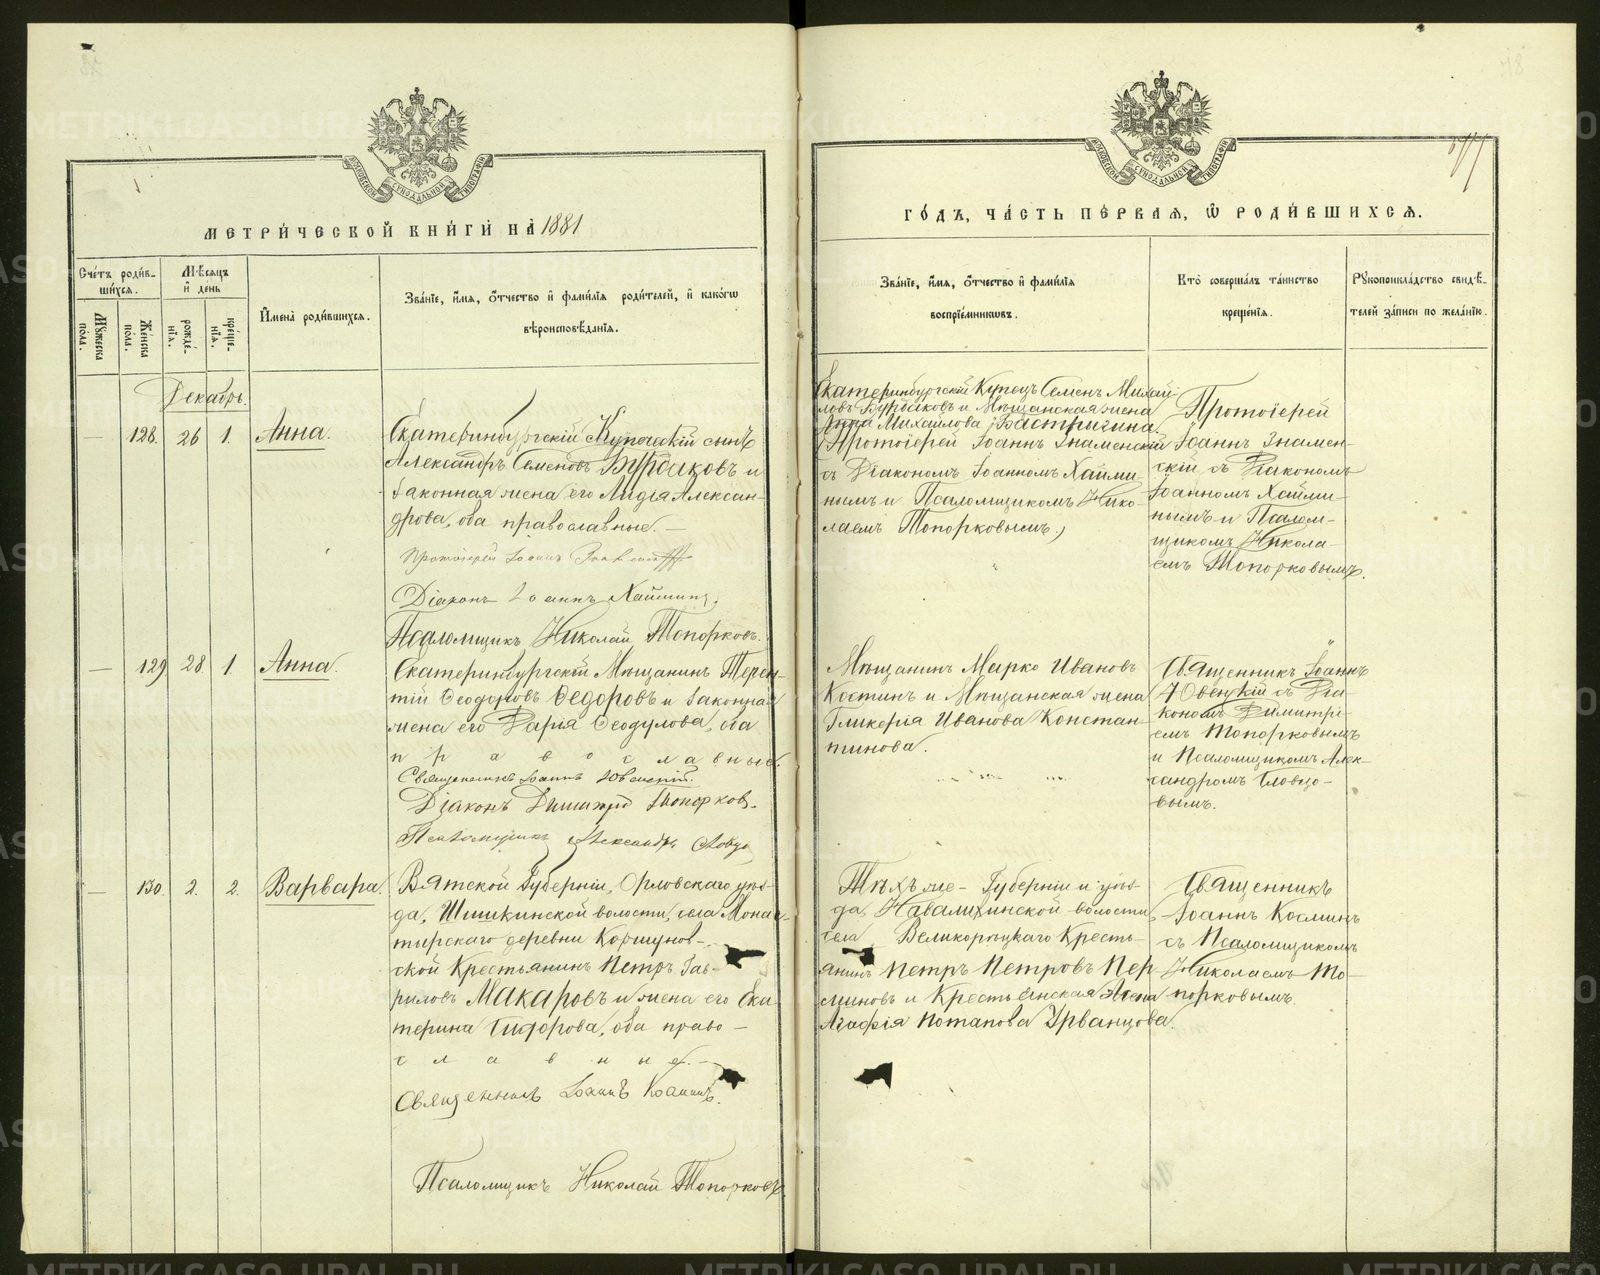 МЕТРИ́ЧЕСКОЙ КНИ́ГИ НА̀ 1881
Сче́тъ роди́в-
шихся.
Мѣсяцъ
и҆ день
И҆мена̀ роди́вшихся.
Зва́нїе, и҆́мя, о҆́тчество и҆ фами́лїя роди́телей, и҆ како́гѡ
вѣроисповѣ́данїя.
Мꙋжеска
по́ла.
Же́нска
по́ла.
рожде́-
нїя.
креще́-
нїя.
Декабрь.
— 128. 26 1. Анна.
Екатеринбургскій Купеческій сынъ
Александръ Семеновъ Бурдаковъ и
законная жена его Лидія Алексан-
дрова, оба православные. —
Протоіерей Іоаннъ Знаменскій
Діаконъ Іоаннъ Хаймин.
Псаломщикъ Николай Топорковъ.
— 129 28 1. Анна.
Екатеринбургскій Мѣщанинъ Терен-
тій Ѳеодоровъ Ѳедоровъ и законная
жена его Дарія Ѳеодулова, оба
православные.
Священникъ Іоаннъ
Діаконъ Димитрій Топорков.
Псаломщикъ Александръ Словцо
— 130. 2. 2. Варвара.
Вятской Губерніи, Орловскаго уѣз-
да, Шишкинской волости, села Монас-
тирскаго деревни Коршунов-
ской Крестьянинъ Петръ Гав-
риловъ Макаровъ и жена его Ека-
терина Сидорова, оба право-
славные. —
Священникъ Іоаннъ Косминъ.
Псаломщикъ Николай Топорковъ.
ГО́ДЪ, ЧА́СТЬ ПЕ́РВАЯ, Ѽ РОДИ́ВШИХСЯ.
Зва́нїе, и҆́мя, о҆́тчество и҆ фами́лїя
воспрїе́мниковъ.
Кто̀ соверша́лъ та́инство
креще́нїя.
Рꙋкоприкла́дство свидѣ́-
телей за́писи по жела́нїю.
Екатеринбургскій Купецъ Семенъ Михай-
ловъ Бурдаковъ и Мѣщанская жена
Анна Михайлова Бастригина.
(Протоіерей Іоаннъ Знаменскій
съ Діакономъ Іоанномъ Хайми-
нымъ и Псаломщикомъ Нико-
лаемъ Топорковымъ.)
Протоіерей
Іоаннъ Знамен-
скій съ Діакономъ
Іоанномъ Хайми-
нымъ и Псалом-
щикомъ Никола-
емъ Топорковымъ.
Мѣщанинъ Марко Ивановъ
Костинъ и Мѣщанская жена
Гликерія Иванова Констан-
тинова.
Священникъ Іоаннъ
съ Діа-
кономъ Димитрі-
емъ Топорковымъ
и Псаломщикомъ Алек-
сандромъ Словцо-
вымъ.
Тѣхъ же - Губерніи и уѣз-
да, Навалихинской волости,
села Великорѣцкаго Кресть-
янинъ Петръ Петровъ Пер-
миновъ и Крестьянская жена
Агафія Потапова Урванцова.
Священникъ
Іоаннъ Косминъ
съ Псаломщикомъ
Николаемъ То-
порковымъ.
METRIKI.GASO-URAL.RU